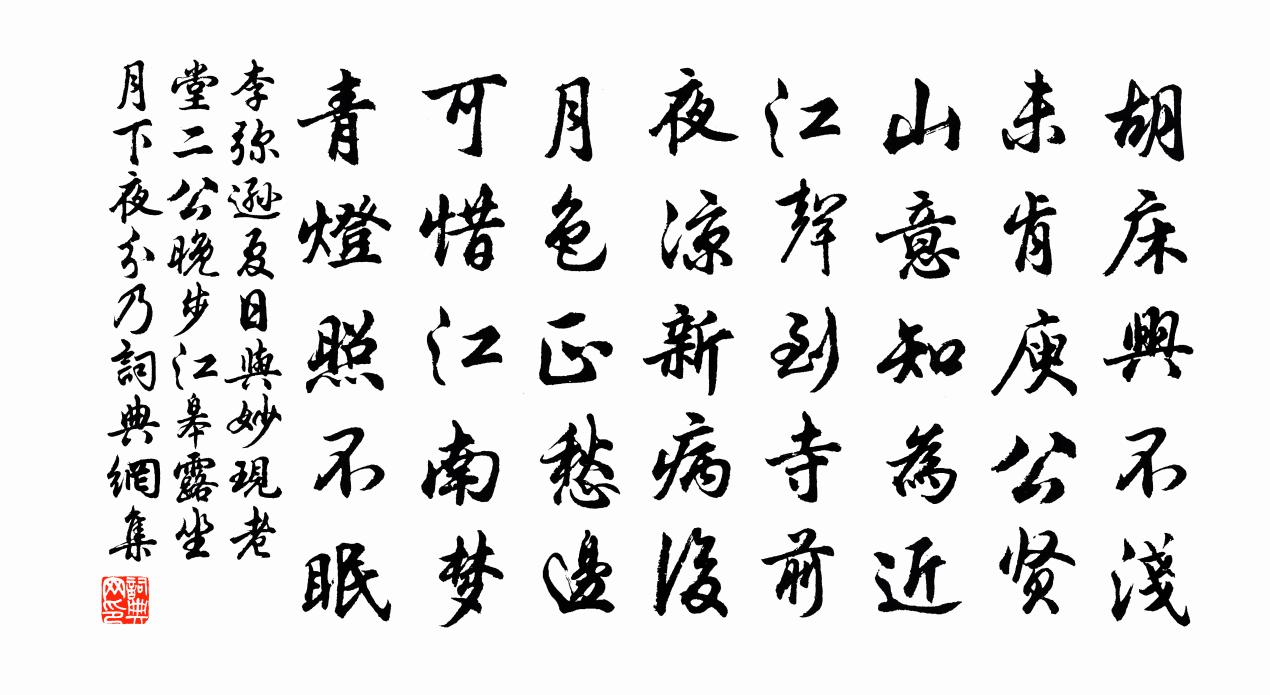 胡床興不淺
未肯庾公贤
山意知為近
江聲到寺前
夜涼新病後
月色正愁邊
可惜江南梦
青燈照不眠
李弥遜夏日與妙現老
堂二公晚步江皋露坐
月下夜分乃詞典網集
詞典網印